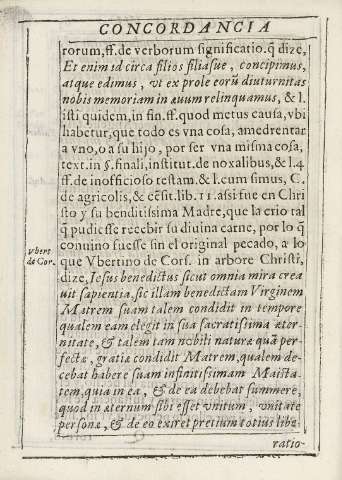 CONCORDANCIA
rorum, ff. de verborum significatio. q̃ dize,
Et enim id circa filios filiasue, concipimus,
atque edimus, vt ex prole eorũ diuturnitas
nobis memoriam in æuum relinquamus, & l.
isti quidem, in fin. ff. quod metus causa, vbi
habetur, que todo es vna cosa, amedrentar
a vno, o a su hijo, por ser vna misma cosa,
text. in §. finali, institut. de noxalibus, & l. 4
ff. de inofficioso testam. & l. cum simus, C.
de agricolis, & cẽsit. lib. 11. assi fue en Chri
sto y su benditissima Madre, que la crio tal
q̃ pudiesse recebir su diuina carne, por lo q̃
conuino fuesse sin el original pecado, a lo
Vbert.
de Cor.
que Vbertino de Cors. in arbore Christi,
dize, Iesus benedictus sicut omnia mira crea
uit sapientia, sic illam benedictam Virginem
Matrem suam talem condidit in tempore
qualem eam elegit in sua sacratissima æter-
nitate, & talem tam nobili naturæ quã per-
fectæ, gratiæ condidit Matrem, qualem de-
cebat habere suam infinitissimam Maiesta
tem, quia in ea, & de ea debebat summere,
quod in æternum sibi esset vnitum, vnitate
personæ, & de eo exiret pretium totius libe
ratio-